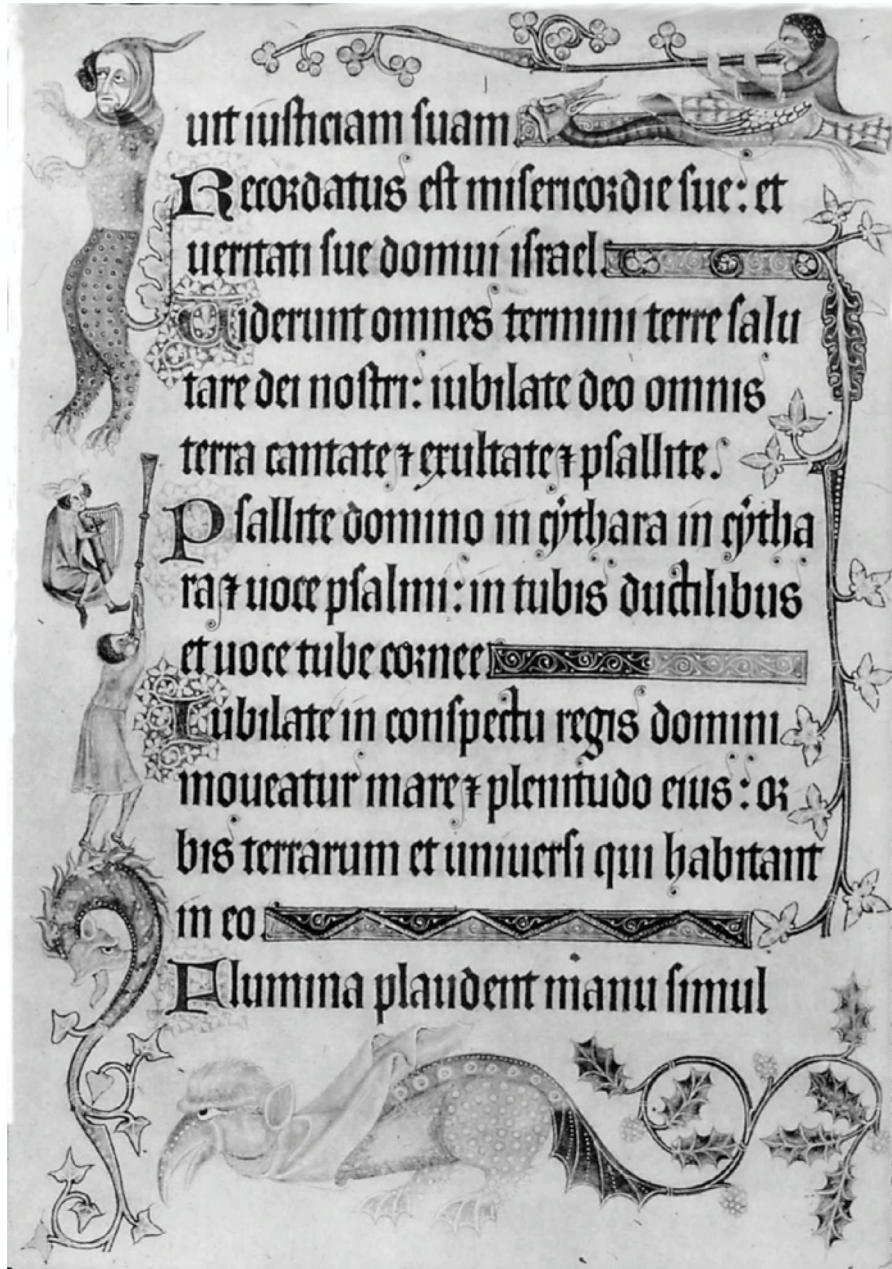 uit iusticiam suam
Recordatus est misericordie sue: et
ueritati sue domui israel.
Uiderunt omnes termini terre salu
tare dei nostri: iubilate deo omnis
terra cantate ⁊ exultate ⁊ psallite.
Psallite domino in cythara in cytha
ra ⁊ uoce psalmi: in tubis ductilibus
et uoce tube cornee
Iubilate in conspectu regis domini
moueatur mare ⁊ plenitudo eius: or
bis terrarum et uniuersi qui habitant
in eo
Flumina plaudent manu simul